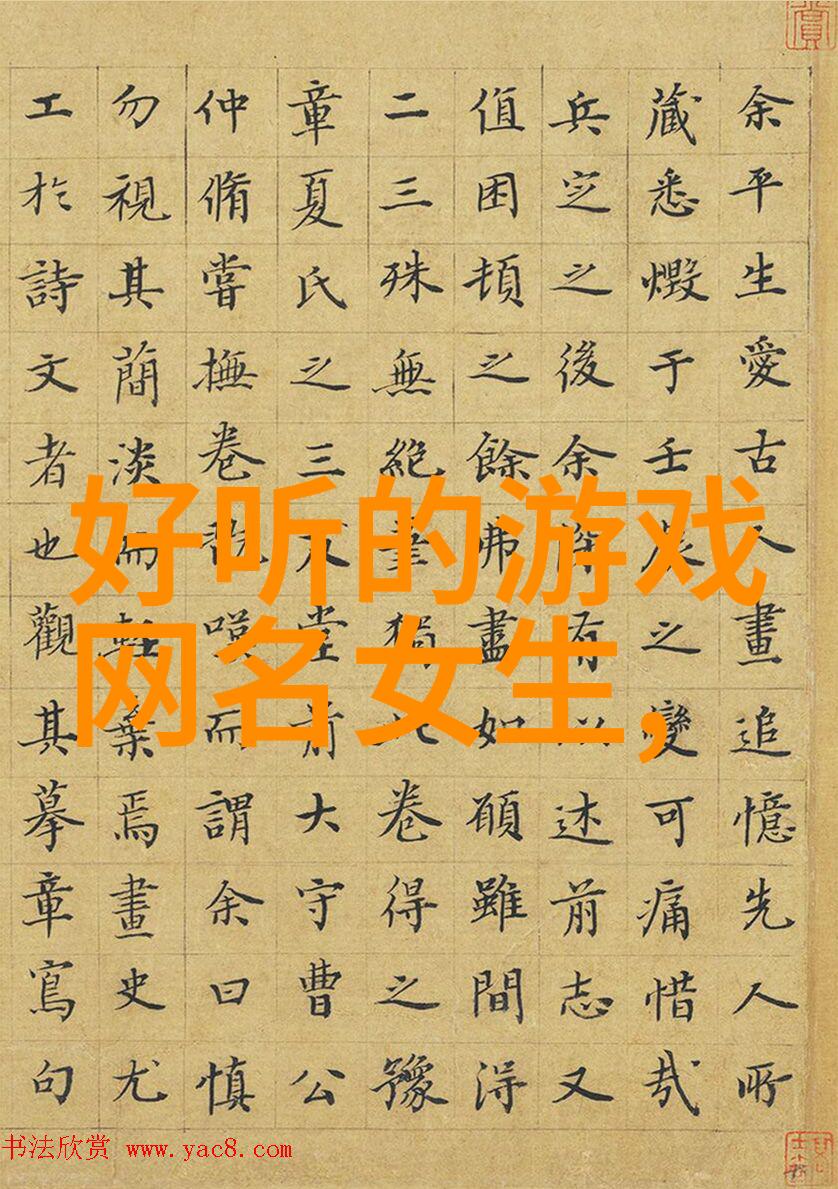 余平生愛古人畫追憶先人所
藏悉燬于壬辰之變可痛惜哉
兵定之後余有以述前志又
值困頓之餘弗盡如願雖間得
二三殊無絕筆獨此卷得之豫
章夏氏之三友堂前大守曹公
仲脩嘗撫卷嘆而謂余曰慎
勿視其簡淡而輕棄焉畫史尤
工於詩文者也觀其摹章寫句
好听的游戏
网名女生,
书法欣赏 www.yac8.com